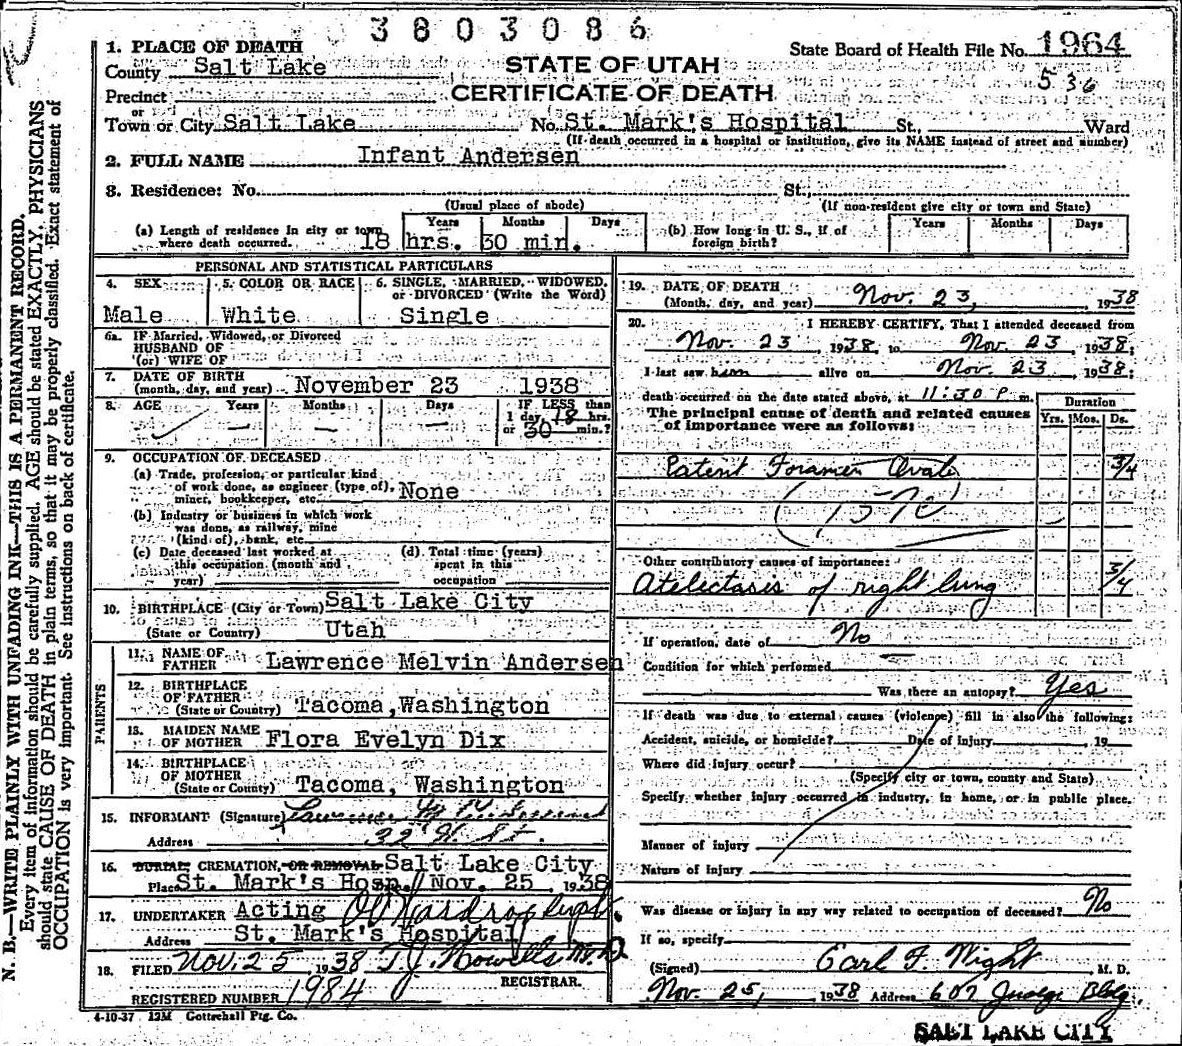 3803086
1. PLACE OF DEATH
State Board of Health File No. 1964
County Salt Lake
STATE OF UTAH
536
Precinct
CERTIFICATE OF DEATH
or
Town or City Salt Lake No. St. Mark's Hospital St., Ward
(If death occurred in a hospital or institution, give its NAME instead of street and number)
2. FULL NAME Infant Andersen
8. Residence: No. St.
(Usual place of abode) (If non-resident give city or town and State)
(a) Length of residence in city or town where death occurred. Years Months Days
18 hrs. 30 min.
(b) How long in U. S., if of foreign birth? Years Months Days
PERSONAL AND STATISTICAL PARTICULARS
4. SEX 5. COLOR OR RACE 6. SINGLE, MARRIED, WIDOWED, or DIVORCED (Write the Word)
Male White Single
6a. IF Married, Widowed, or Divorced
HUSBAND OF
(or) WIFE OF
7. DATE OF BIRTH
(month, day, and year) November 23 1938
8. AGE Years Months Days IF LESS than
1 day, 18 hrs.
or 30 min.?
9. OCCUPATION OF DECEASED
(a) Trade, profession, or particular kind
of work done, as engineer (type of),
miner, bookkeeper, etc. None
(b) Industry or business in which work
was done, as railway, mine
(kind of), bank, etc.
(c) Date deceased last worked at
this occupation (month and
year)
(d) Total time (years)
spent in this
occupation
10. BIRTHPLACE (City or Town) Salt Lake City
(State or Country) Utah
PARENTS
11. NAME OF
FATHER Lawrence Melvin Andersen
12. BIRTHPLACE
OF FATHER
(State or Country) Tacoma, Washington
13. MAIDEN NAME
OF MOTHER Flora Evelyn Dix
14. BIRTHPLACE
OF MOTHER
(State or Country) Tacoma, Washington
15. INFORMANT (Signature) Lawrence M Andersen
Address 32 H. St.
16. BURIAL, CREMATION, OR REMOVAL Salt Lake City
Place St. Mark's Hosp. Nov. 25, 1938
17. UNDERTAKER Acting
Address St. Mark's Hospital
18. FILED Nov. 25 1938 T. J. Howells M.D.
REGISTRAR.
REGISTERED NUMBER 1984
4-10-37 12M Gottschall Ptg. Co.
19. DATE OF DEATH
(Month, day, and year) Nov. 23, 1938
20. I HEREBY CERTIFY, That I attended deceased from
Nov. 23, 1938, to Nov. 23, 1938;
I last saw him alive on Nov. 23, 1938;
death occurred on the date stated above, at 11:30 P. m.
The principal cause of death and related causes
of importance were as follows:
Duration
Yrs. Mos. Ds.
Patent Foramen Ovale 3/4
Other contributory causes of importance:
Atelectasis of right lung 3/4
If operation, date of No
Condition for which performed
Was there an autopsy? Yes
If death was due to external causes (violence) fill in also the following:
Accident, suicide, or homicide? Date of injury , 19
Where did injury occur?
(Specify city or town, county and State)
Specify whether injury occurred in industry, in home, or in public place.
Manner of injury
Nature of injury
Was disease or injury in any way related to occupation of deceased? No
If so, specify
(Signed) Earl F. Wight M. D.
Nov. 25, 1938 Address 607 Judge Bldg.
SALT LAKE CITY
N. B.—WRITE PLAINLY WITH UNFADING INK—THIS IS A PERMANENT RECORD.
Every item of information should be carefully supplied. AGE should be stated EXACTLY. PHYSICIANS
should state CAUSE OF DEATH in plain terms, so that it may be properly classified. Exact statement of
OCCUPATION is very important. See instructions on back of certificate.